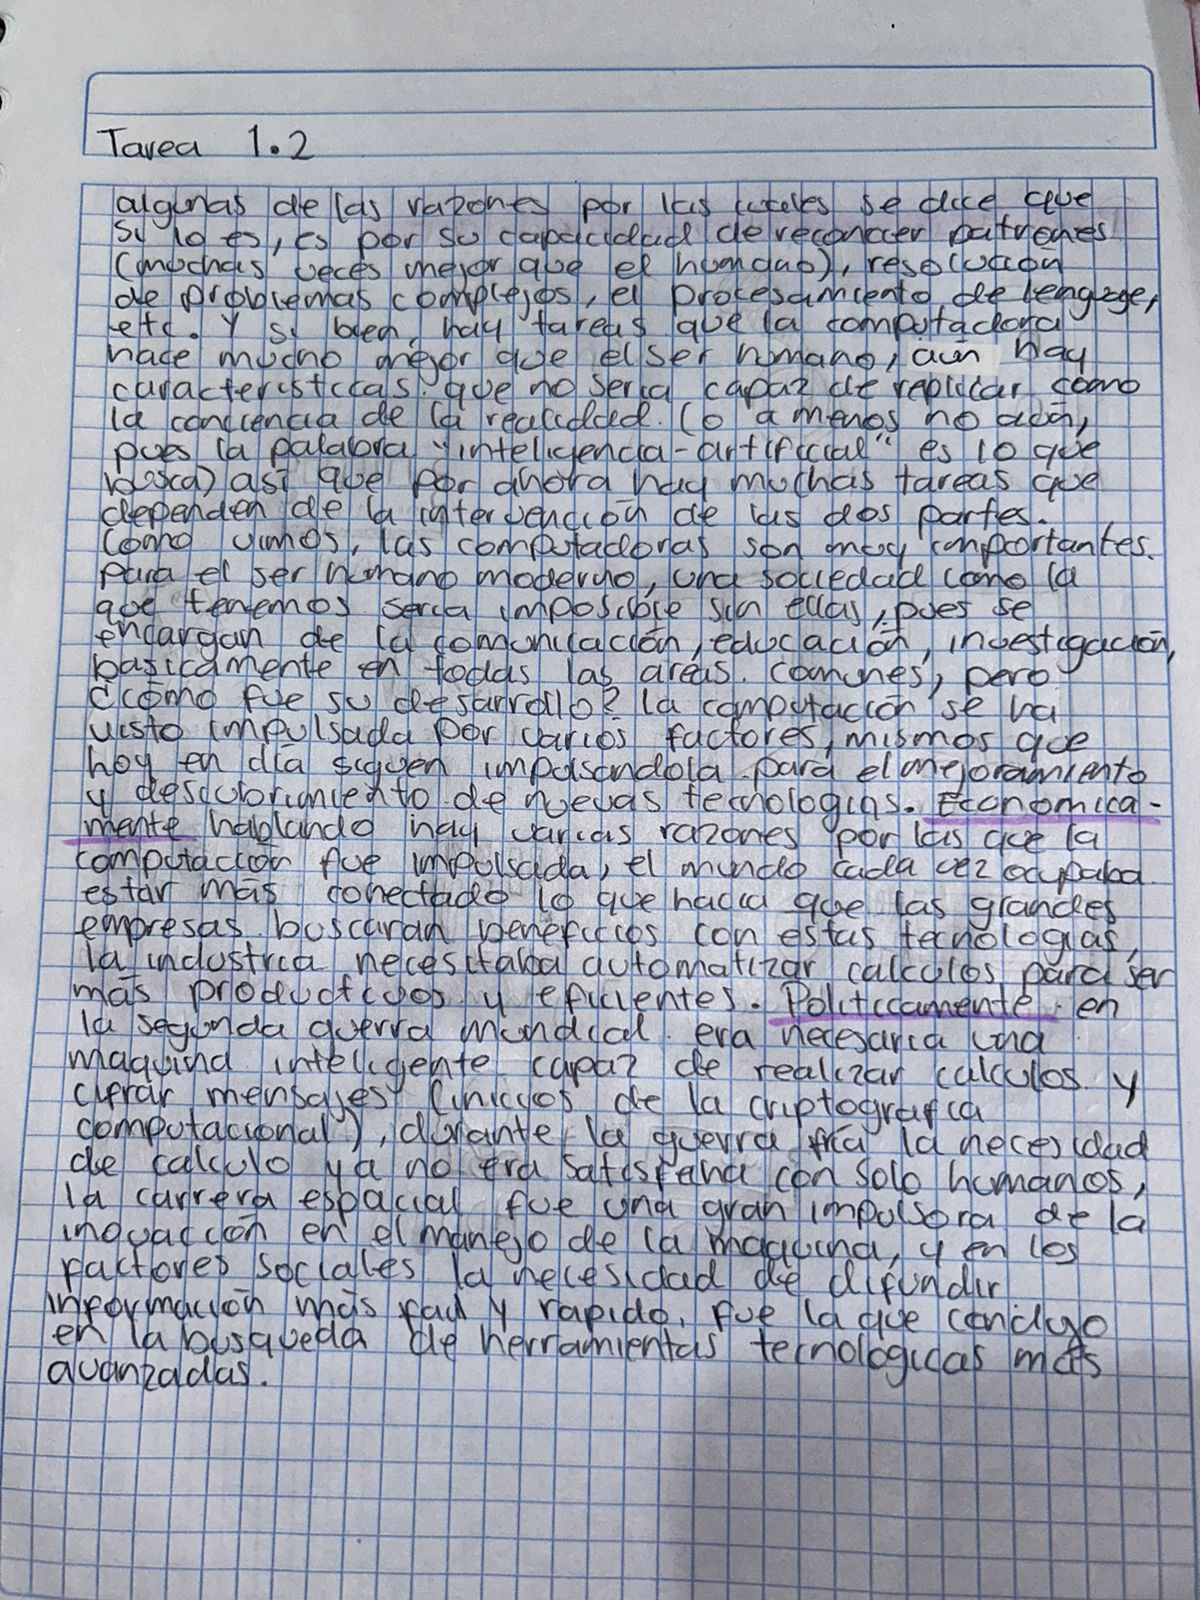 Tarea 1.2
algunas de las razones por las cuales se dice que
si lo es, es por su capacidad de reconocer patrones
(muchas veces mejor que el humano), resolución
de problemas complejos, el procesamiento de lenguage,
etc. Y si bien, hay tareas que la computadora
hace mucho mejor que el ser humano, aún hay
caracteristicas que no seria capaz de replicar como
la conciencia de la realidad. (o a menos no aún,
pues la palabra "inteligencia-artificial" es lo que
busca) así que por ahora hay muchas tareas que
dependen de la intervención de las dos partes.
Como vimos, las computadoras son muy importantes.
para el ser humano moderno, una sociedad como la
que tenemos seria imposible sin ellas, pues se
encargan de la comunicación, educación, investigación,
basicamente en todas las areas. comunes, pero
¿cómo fue su desarrollo? la computación se ha
visto impulsada por varios factores, mismos que
hoy en día siguen impulsandola para el mejoramiento
y descubrimiento de nuevas tecnologias. Economica-
mente hablando hay varias razones por las que la
computación fue impulsada, el mundo cada vez ocupaba
estar más conectado lo que hacia que las grandes
empresas buscaran beneficios con estas tecnologías,
la industria necesitaba automatizar calculos para ser
más productivos y eficientes. Politicamente en
la segunda guerra mundial era necesaria una
maquina inteligente capaz de realizar calculos y
cifrar mensajes (inicios de la criptografia
computacional), durante la guerra fría la necesidad
de calculo ya no era satisfecha con solo humanos,
la carrera espacial fue una gran impulsora de la
inovacción en el manejo de la maquina, y en los
factores sociales la necesidad de difundir
información más facil y rapido, fue la que condujo
en la busqueda de herramientas tecnologicas más
avanzadas.